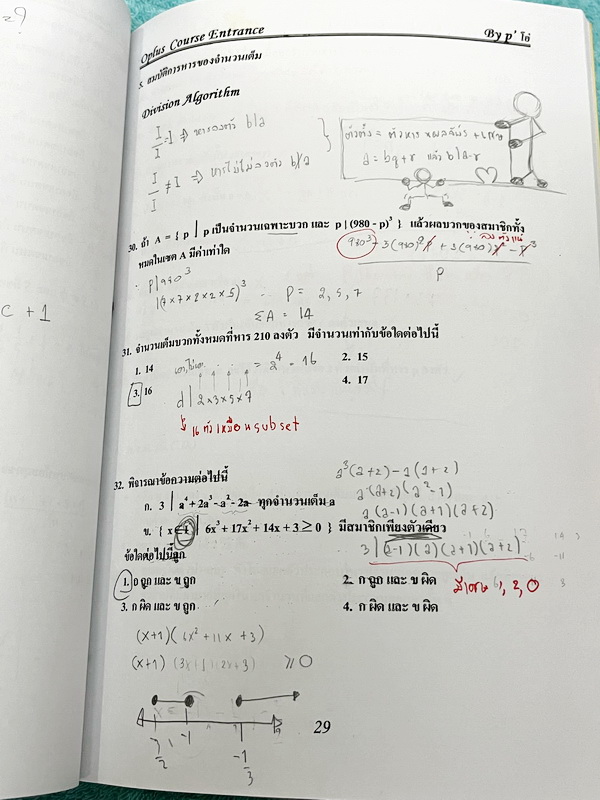 Oplus Course Entrance
By p' โอ๋
5. สมบัติการหารของจำนวนเต็ม
Division Algorithm
I/I = I ⇒ หารลงตัว b|a
I/I ≠ I ⇒ หารไม่ลงตัว b∤a
ตัวตั้ง = ตัวหาร × ผลลัพธ์ + เศษ
a = bq + r แล้ว b|a-r
30. ถ้า A = { p | p เป็นจำนวนเฉพาะบวก และ p | (980 - p)³ } แล้วผลบวกของสมาชิกทั้ง
หมดในเซต A มีค่าเท่าใด
p|980³
|(7×7×2×2×5)³ ∴ p = 2, 5, 7
ΣA = 14
31. จำนวนเต็มบวกทั้งหมดที่หาร 210 ลงตัว มีจำนวนเท่ากับข้อใดต่อไปนี้
1. 14
2. 15
3. 16
4. 17
= 2⁴ = 16
d | 2×3×5×7
16 ตัว เหมือน subset
32. พิจารณาข้อความต่อไปนี้
ก. 3 | a⁴ + 2a³ - a² - 2a ทุกจำนวนเต็ม a
ข. { x ∈ I | 6x³ + 17x² + 14x + 3 ≥ 0 } มีสมาชิกเพียงตัวเดียว
ข้อใดต่อไปนี้ถูก
1. ก ถูก และ ข ถูก
2. ก ถูก และ ข ผิด
3. ก ผิด และ ข ถูก
4. ก ผิด และ ข ผิด
a³(a+2)-a(a+2)
a(a+2)(a²-1)
a(a-1)(a+1)(a+2)
3|(a-1)(a)(a+1)(a+2)
มีเศษ 1, 2, 0
(x+1)(6x²+11x+3)
(x+1)(3x+1)(2x+3) ≥ 0
-3/2 -1 -1/3
29
c + 1